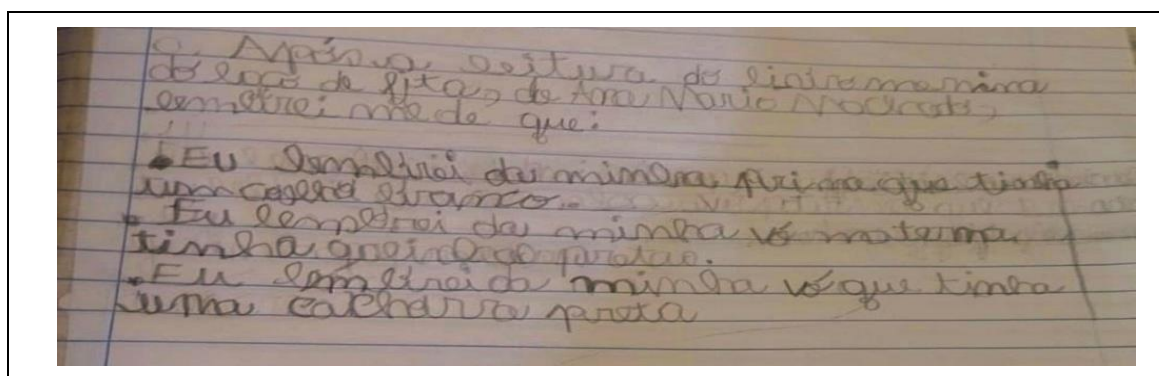 Após a leitura do livro menina
do laço de fita, de Ana Maria Machado,
lembrei me de que:
Eu lembrei da minha prima que tinha
um branco.
Eu lembrei da minha vó materna
tinha
Eu lembrei da minha vó que tinha
uma preta